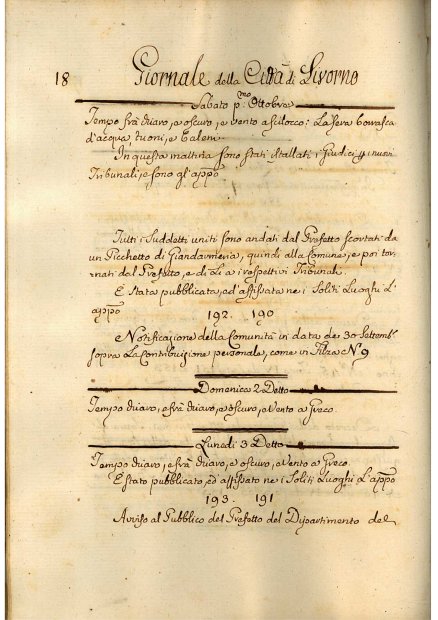 18 Giornale della Città di Livorno
Sabato p.mo Ottobre
Tempo frà chiaro, e oscuro, e vento a scilocco: La sera borrasca
d'acqua, tuoni, e baleni
In questa mattina sono stati stallati i Giudici nuovi
Tribunali, e sono gl'appo
Tutti i Suddetti uniti sono andati dal Prefetto scortati da
un Picchetto di Giandarmeria, quindi alla Comune, e poi tor-
nati dal Prefetto, e di Li a i respettivi Tribunali.
È Stata pubblicata, ed'affissata ne i Soliti Luoghi L'
appo
192. 190
Notificazione della Comunità in data de 30 Settemb.
sopra La Contribuzione personale, come in Filza N. 9
Domenica 2 Detto
Tempo chiaro, e frà chiaro, e oscuro, e Vento a Greco
Lunedi 3 Detto
Tempo chiaro, e frà chiaro, e oscuro, e Vento a Greco
È Stato pubblicato, ed affissato ne i Soliti Luoghi L'appo
193. 191
Avviso al Pubblico del Prefetto del Dipartimento del